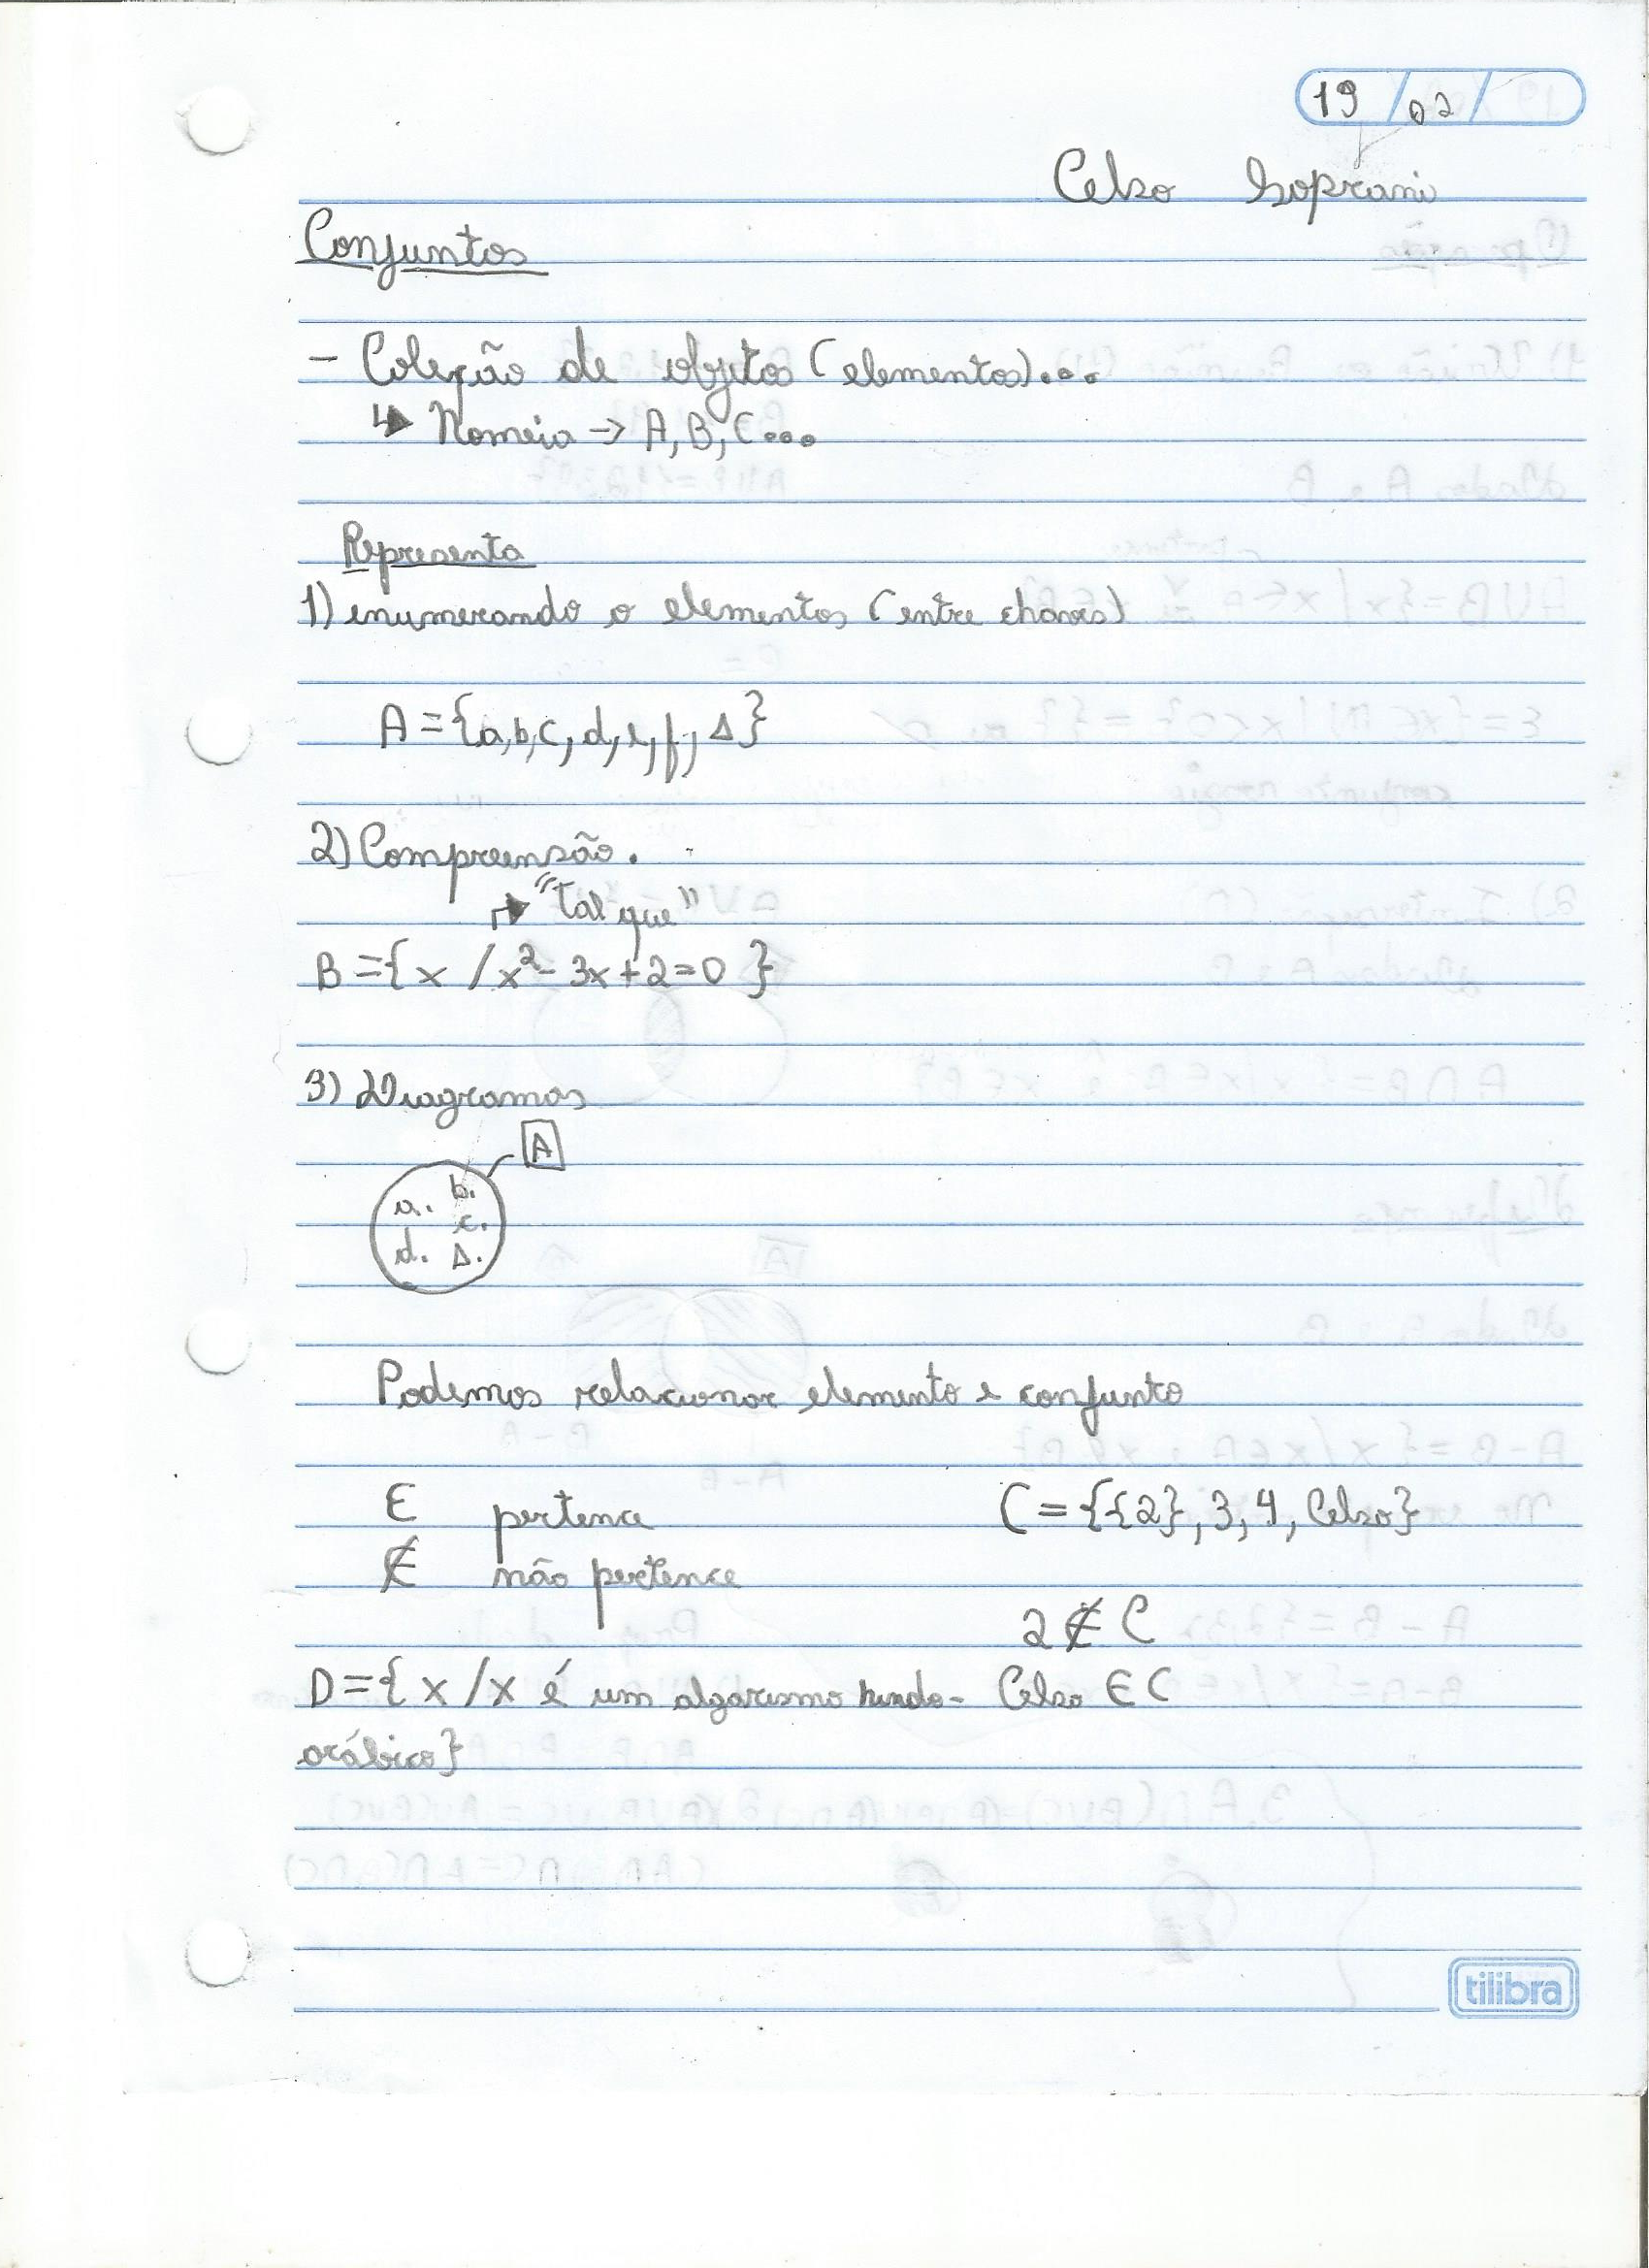 19/02/
Celso Isoprani
Conjuntos
- Coleção de objetos (elementos)...
↳ Nomeia → A, B, C...
Representa
1) enumerando o elementos (entre chaves)
A = {a, b, c, d, e, f, Δ}
2) Compreensão.
↱ "tal que"
B = {x / x² - 3x + 2 = 0 }
3) Diagramas
A
a. b.
c.
d. Δ.
Podemos relacionar elemento e conjunto
∈ pertence C = {{2}, 3, 4, Celso}
∉ não pertence
2 ∉ C
D = {x / x é um algarismo hindo- Celso ∈ C
arábico}
tilibra